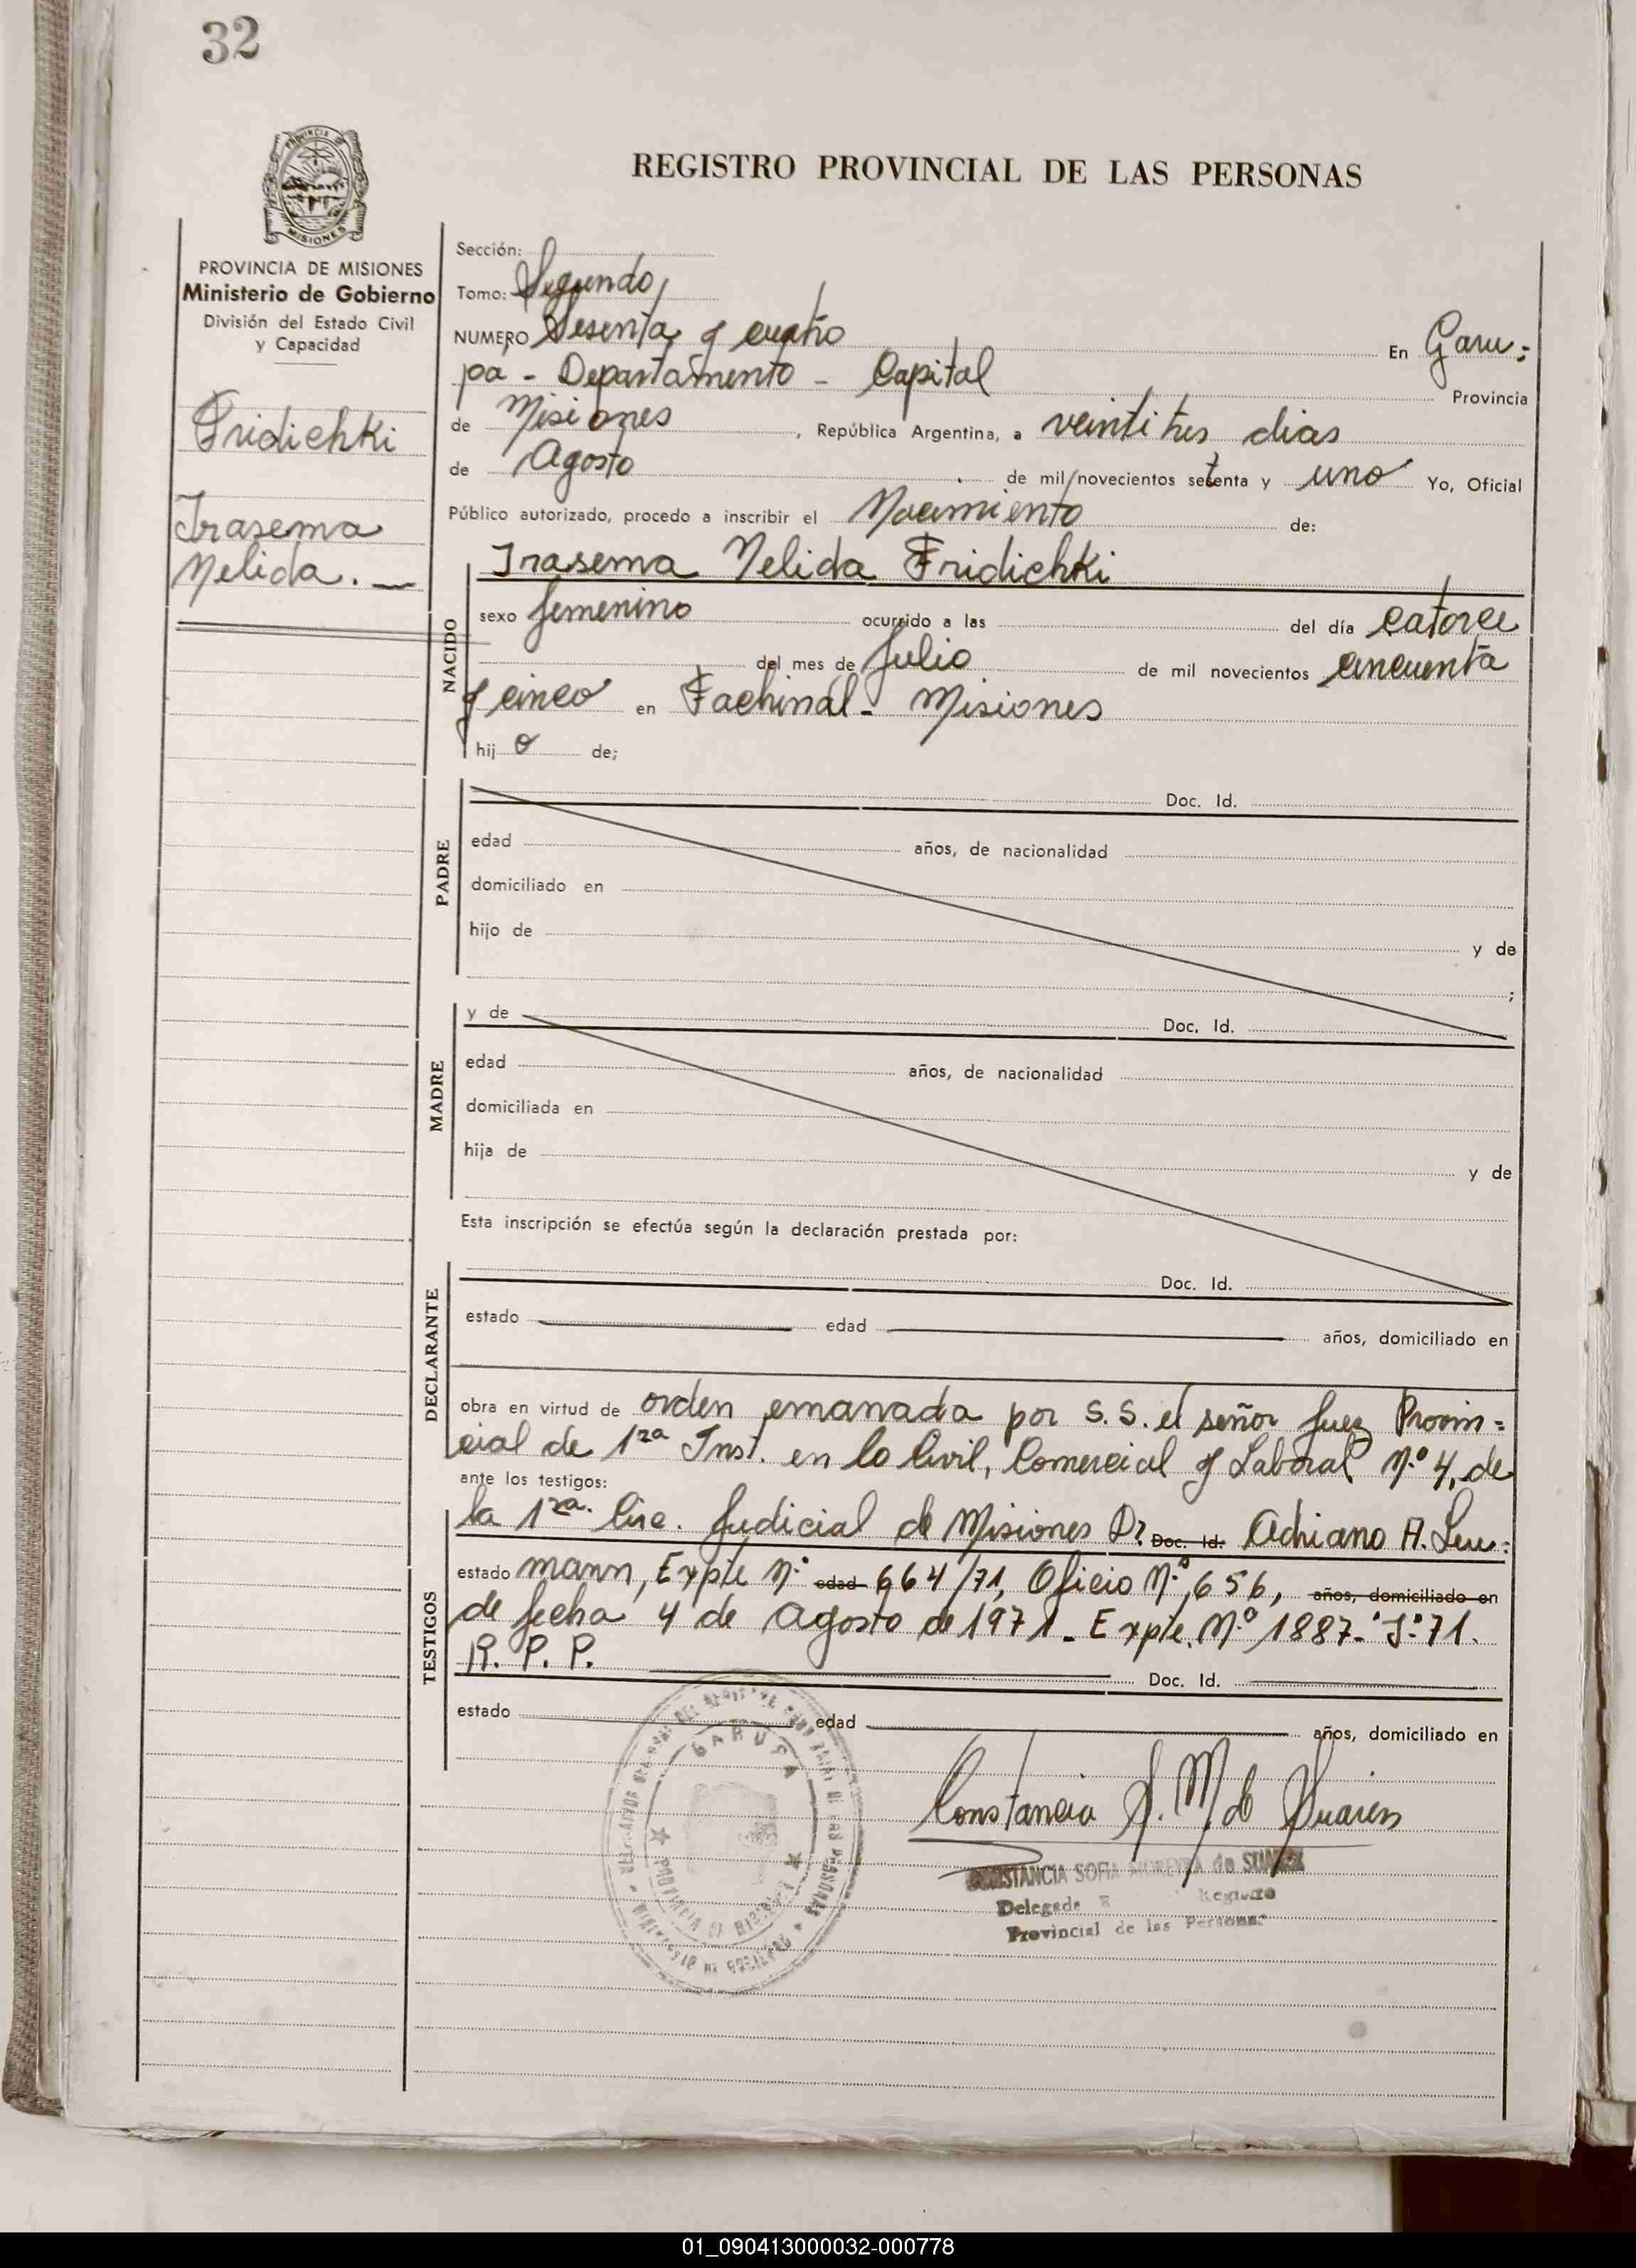 32
PROVINCIA DE
MISIONES
REGISTRO PROVINCIAL DE LAS PERSONAS
PROVINCIA DE MISIONES
Ministerio de Gobierno
División del Estado Civil
y Capacidad
Fridichki
Irasema
Nelida. —
Sección:
Tomo: Segundo
NUMERO Sesenta y cuatro En Garu=
pa - Departamento - Capital Provincia
de Misiones, República Argentina, a veintitres dias
de Agosto de mil novecientos setenta y uno Yo, Oficial
Público autorizado, procedo a inscribir el Nacimiento de:
Irasema Nelida Fridichki
NACIDO
sexo femenino ocurrido a las del día catorce
del mes de Julio de mil novecientos cincuenta
y cinco en Fachinal - Misiones
hij a de;
PADRE
Doc. Id.
edad años, de nacionalidad
domiciliado en
hijo de y de
;
MADRE
y de Doc. Id.
edad años, de nacionalidad
domiciliada en
hija de y de
Esta inscripción se efectúa según la declaración prestada por:
DECLARANTE
Doc. Id.
estado edad años, domiciliado en
obra en virtud de orden emanada por S.S. el señor Juez Provin=
cial de 1ra Inst. en lo Civil, Comercial y Laboral N.º 4, de
ante los testigos:
la 1ra. Circ. Judicial de Misiones Dr. Doc. Id. Adriano A. Leu=
TESTIGOS
estado mann, Expte N.º edad 664/71, Oficio N.º 656, años, domiciliado en
de fecha 4 de Agosto de 1971 - Expte. N.º 1887-"J"71.
R. P. P. Doc. Id.
estado edad años, domiciliado en
GARUPA
PROVINCIA DE MISIONES
Constancia S. M de Suarez
CONSTANCIA SOFIA MOREYRA de SUAREZ
Delegada Registro
Provincial de las Personas
01_090413000032-000778